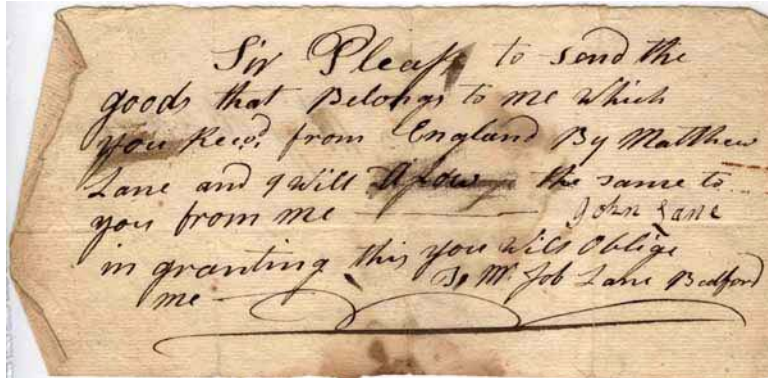 Sir Please to send the
goods that Belongs to me which
you Recd. from England By Matthew
Lane and I will Alow the same to
you from me John Lane
in granting this you will Oblige
me To Mr Job Lane Bedford